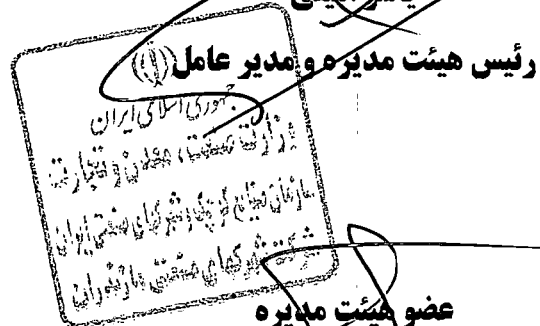 رئیس هیئت مدیره و مدیر عامل
جمهوری اسلامی ایران
وزارت صنعت، معدن و تجارت
سازمان صنایع کوچک و شهرکهای صنعتی ایران
شرکت شهرکهای صنعتی مازندران
عضو هیئت مدیره